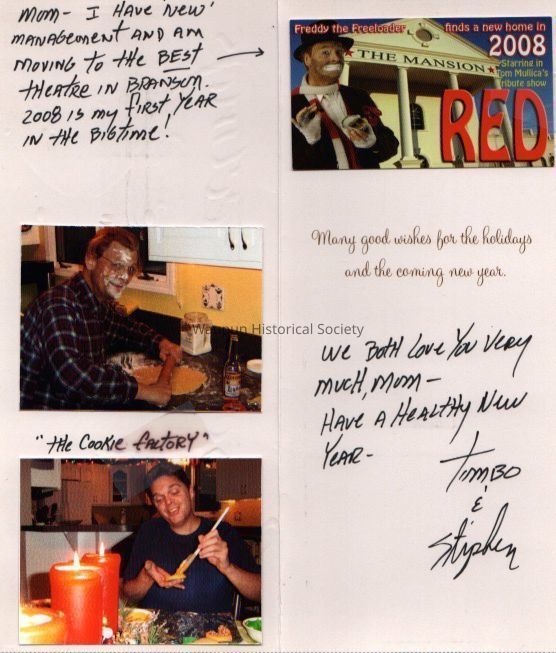 Mom- I HAVE 'NEW'
MANAGEMENT AND AM
MOVING TO tHE BEST
tHEAtRE IN BRANSON.
2008 IS my fIRST YEAR
IN tHE BIGTIME!
Freddy the Freeloader finds a new home in
2008
Starring in
Tom Mullica's
tribute show
★ THE MANSION ★
RED
Many good wishes for the holidays
and the coming new year.
Waupun Historical Society
WE BOTH LOVE YOU VERY
MUCH, MOM-
HAVE A HEALTHY NEW
YEAR-
TIMBO
&
Stephen
"tHE COOKIE fACTORY"